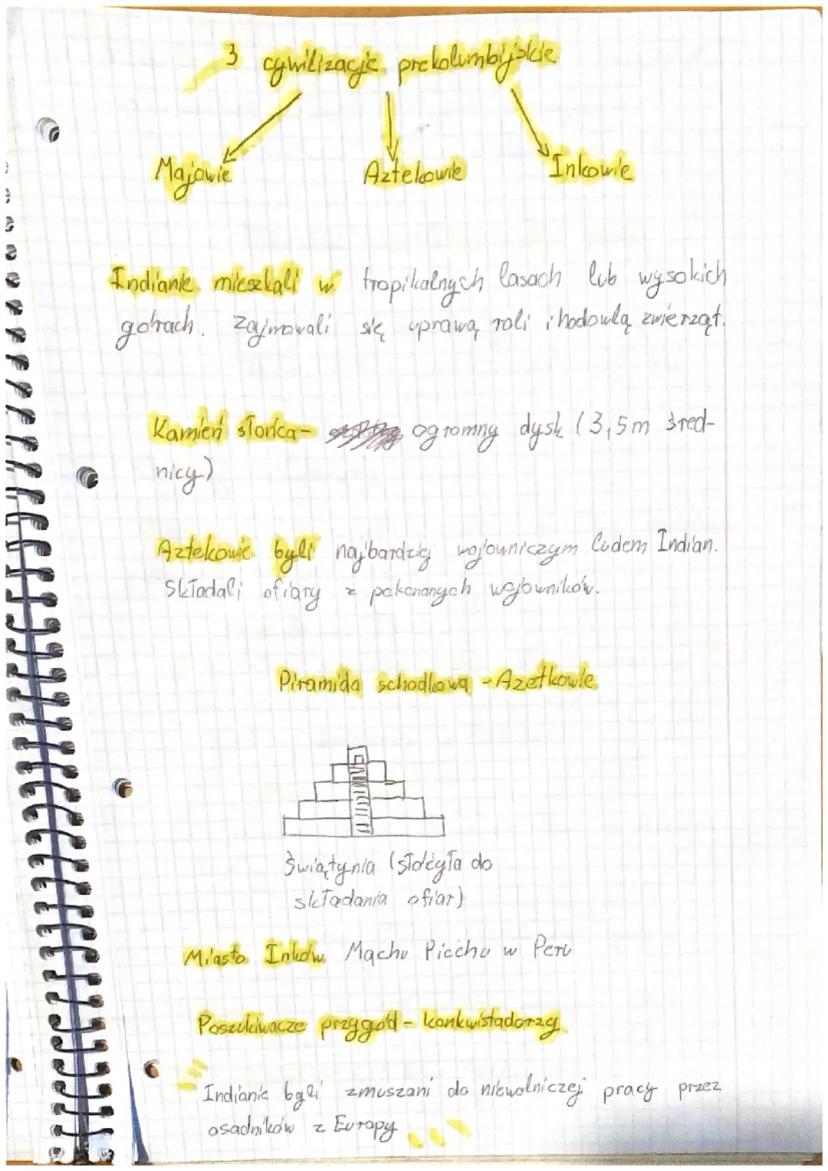 3 cywilizacje prekolumbijskie
Majowie Aztekowie Inkowie
Indianie mieszkali w tropikalnych lasach lub wysokich
górach. Zajmowali się uprawą roli i hodowlą zwierząt.
Kamień słońca - ogromny dysk (3,5m śred-
nicy)
Aztekowie byli najbardziej wojowniczym ludem Indian.
Składali ofiary z pokonanych wojowników.
Piramida schodkowa - Azetkowie
Świątynia (słóżyła do
składania ofiar)
Miasto Inków Machu Picchu w Peru
Poszukiwacze przygód - konkwistadorzy
Indianie byli zmuszani do niewolniczej pracy przez
osadników z Europy